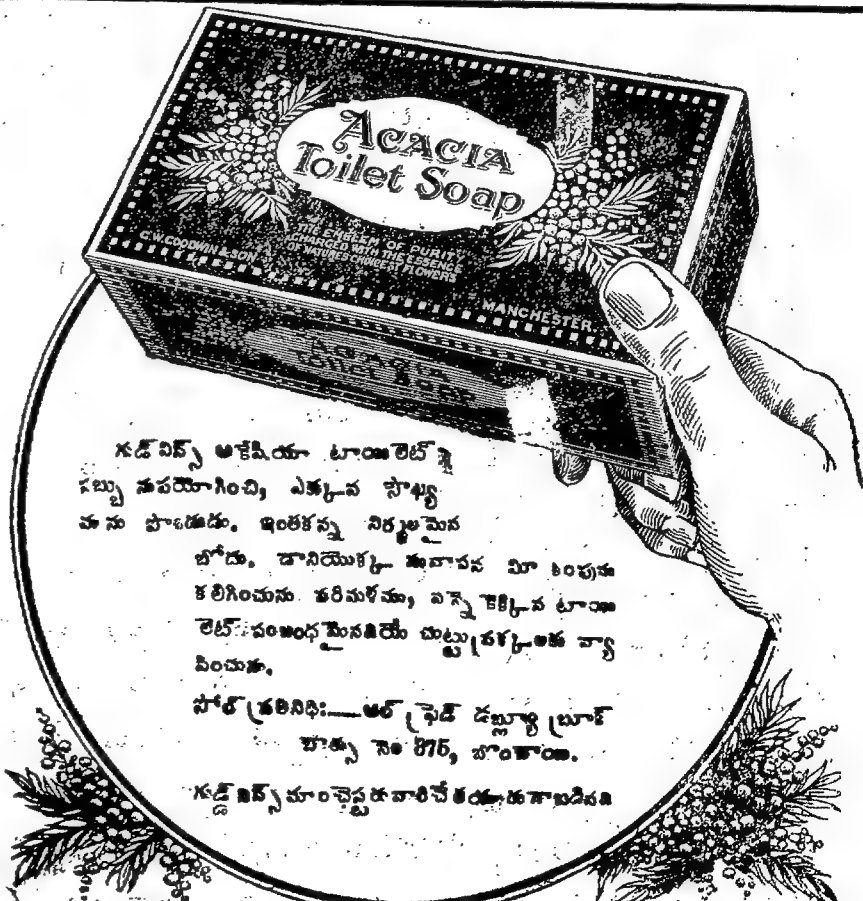 ACACIA
Toilet Soap
THE EMBLEM OF PURITY
CHARGED WITH THE ESSENCE
OF NATURES CHOICEST FLOWERS
G.W. GOODWIN & SON
MANCHESTER.
ACACIA
Toilet Soap
గుడ్ విన్స్ అకేషియా టాయిలెట్
సబ్బు నుపయోగించి, ఎక్కువ సౌఖ్య
మును పొందుడు. ఇంతకన్న నిర్మలమైన
బోదు. దానియొక్క సువాసన మీ కింపును
కలిగించును పరిమళము, ఎన్నొ కెక్కువ టాయి
లెట్ సంబంధమైనదియే చుట్టుప్రక్కలకు వ్యా
పించును.
సోల్ ప్రతినిధి:—ఆల్ ఫ్రెడ్ డబ్ల్యూ బ్రూక్
బాక్సు నెం 375, బొంబాయి.
గుడ్డ్ విన్స్ మాంచెస్టరువారిచే తయారుగాబడినది